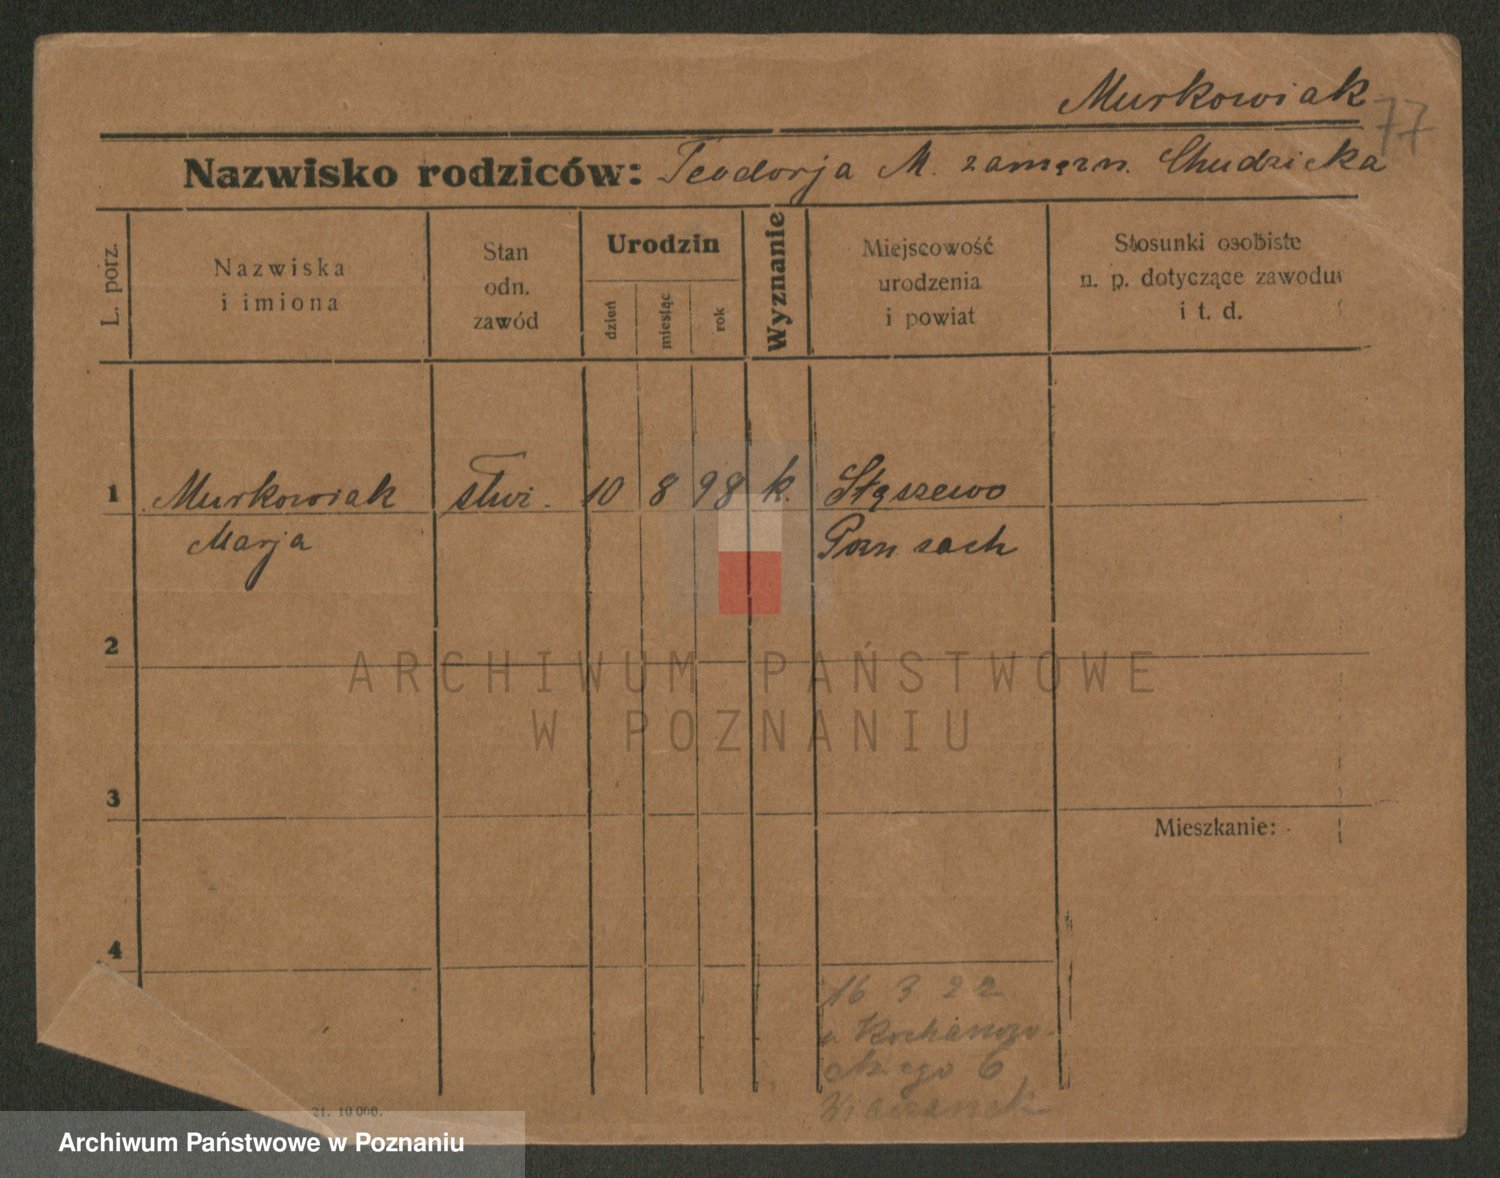 Murkowiak
77
Nazwisko rodziców: Teodorja M. zamęzn. Chudzicka
L. porz.
Nazwiska
i imiona
Stan
odn.
zawód
Urodzin
dzień
miesiąc
rok
Wyznanie
Miejscowość
urodzenia
i powiat
Stosunki osobiste
n. p. dotyczące zawodu
i t. d.
1 Murkowiak służ. 10 8 98 k. Stęszewo
Marja Pozn zach
2
ARCHIWUM PAŃSTWOWE
W POZNANIU
3
Mieszkanie:
4
16 3 22
6
21. 10 000.
Archiwum Państwowe w Poznaniu